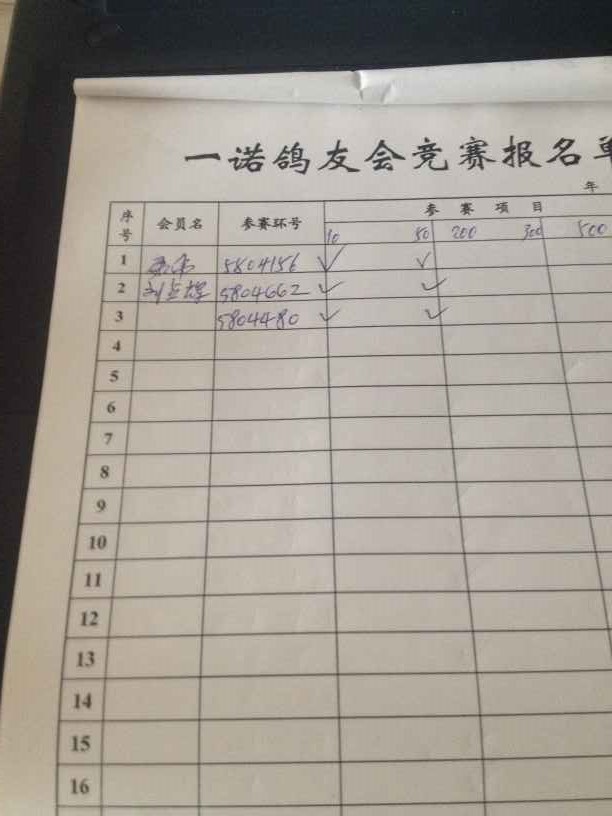 一诺鸽友会竞赛报名单
年
序号 会员名 参赛环号 参赛项目
10 50 200 300 500
1 5804156 ✓ ✓
2 刘 5804662 ✓ ✓
3 5804480 ✓ ✓
4
5
6
7
8
9
10
11
12
13
14
15
16